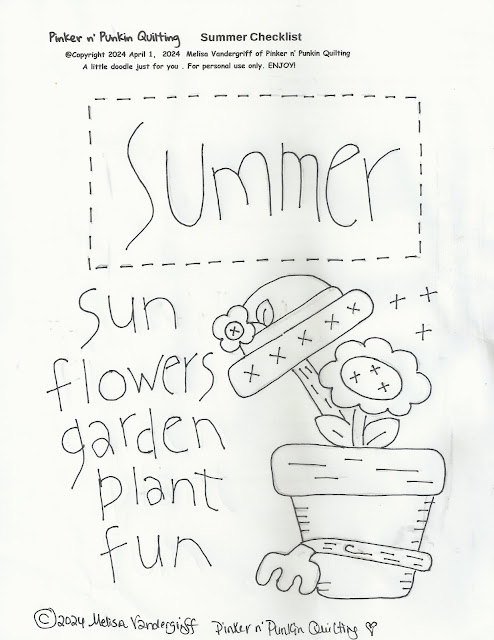 Pinker n' Punkin Quilting Summer Checklist
@Copyright 2024 April 1, 2024 Melisa Vandergriff of Pinker n' Punkin Quilting
A little doodle just for you . For personal use only. ENJOY!
Summer
sun
flowers
garden
plant
fun
©2024 Melisa Vandergriff Pinker n' Punkin Quilting